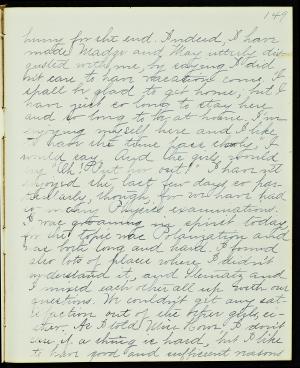 149
hurry for the end. Indeed, I have
made Madge and May utterly dis-
gusted with me, by saying I did
not care to have vacation come. I
shall be glad to get home, but I
have just so long to stay here
and so long to be at home. I'm
enjoying myself here and I like
to have the time pass slowly, I
would say. And the girls would
say "Oh! Put her out!" I have not
enjoyed the last few days so par-
ticularly, though, for we have had
our Physics examinations.
I was groaning in spirit today
for the topic was Polarization and
was both long and hard. I found
also lots of places where I didn't
understand it, and Eleanor and
I mixed each other all up with our
questions. We couldn't get any sat-
isfaction out of the other girls, ei-
ther. As I told Miss I don't
care if a thing is hard, but I like
to have good and sufficient reasons